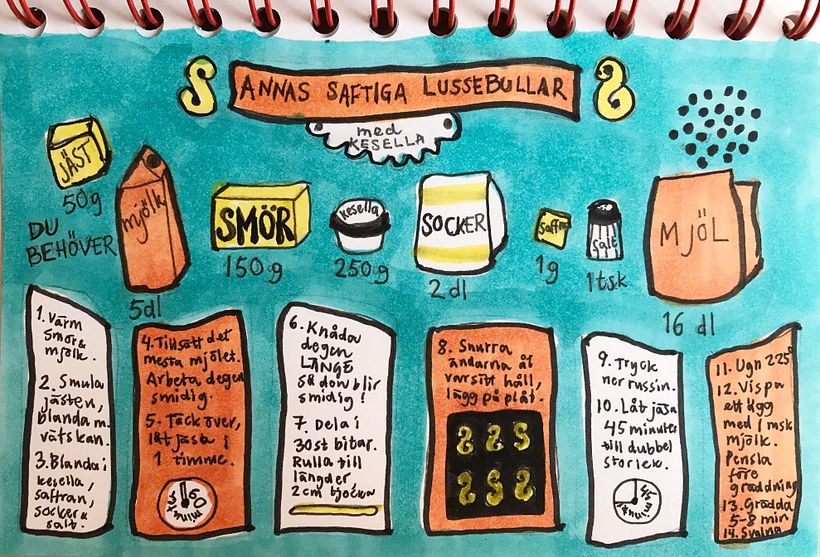 ANNAS SAFTIGA LUSSEBULLAR
med
KESELLA
DU
BEHÖVER
JÄST
50g
mjölk
5dl
SMÖR
150g
kesella
250g
SOCKER
2 dl
Saffran
1g
Salt
1 tsk
MJÖL
16 dl
1. Värm
smör &
mjölk.
2. Smula
jästen,
blanda m.
vätskan.
3. Blanda i
kesella,
saffran,
socker &
salt.
4. Tillsätt det
mesta mjölet.
Arbeta degen
smidig.
5. Täck över,
låt jäsa i
1 timme.
6. Knåda
degen
LÄNGE
så den blir
smidig!
7. Dela i
30 st bitar.
Rulla till
längder
2 cm tjocka
8. Snurra
ändarna åt
varsitt håll,
lägg på plåt.
9. Tryck
ner russin.
10. Låt jäsa
45 minuter
till dubbel
storlek.
11. Ugn 225°
12. Vispa
ett ägg
med 1 msk
mjölk.
Pensla
före
gräddning
13. Grädda
5-8 min
14. Svalna